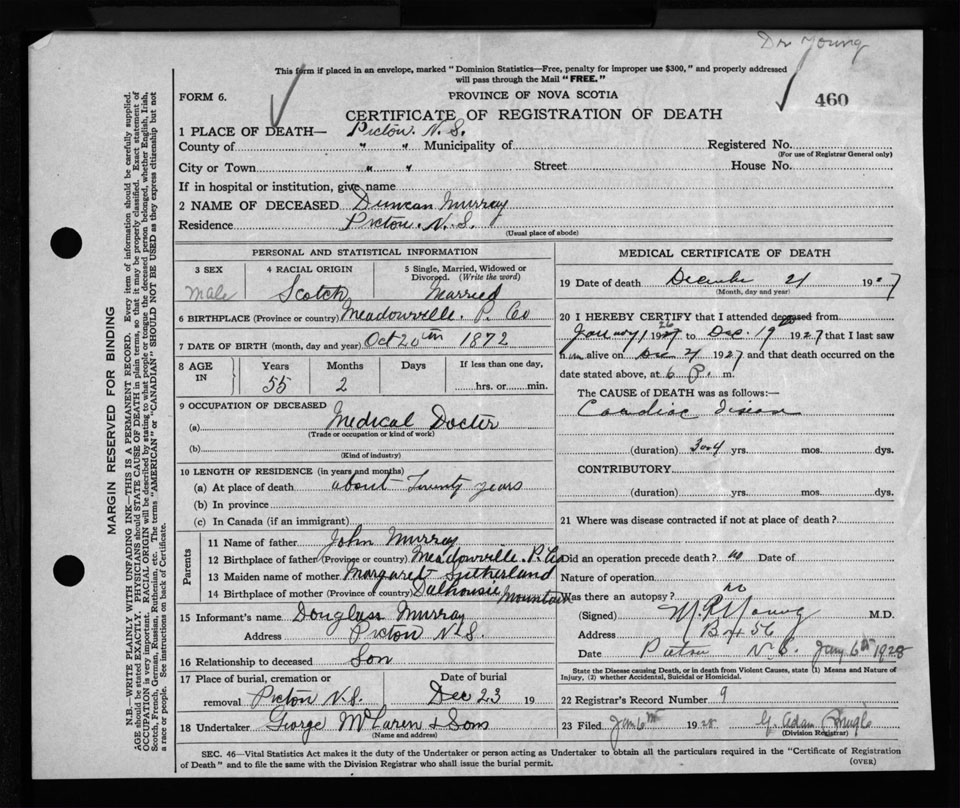 Dr Young
This form if placed in an envelope, marked "Dominion Statistics—Free, penalty for improper use $300," and properly addressed
will pass through the Mail "FREE."
FORM 6.
PROVINCE OF NOVA SCOTIA
460
CERTIFICATE OF REGISTRATION OF DEATH
1 PLACE OF DEATH— Pictou. N.S.
County of " " Municipality of Registered No.
(For use of Registrar General only)
City or Town " " Street House No.
If in hospital or institution, give name
2 NAME OF DECEASED Duncan Murray
Residence Pictou. N.S.
(Usual place of abode)
PERSONAL AND STATISTICAL INFORMATION
3 SEX 4 RACIAL ORIGIN 5 Single, Married, Widowed or
Divorced. (Write the word)
Male Scotch Married
6 BIRTHPLACE (Province or country) Meadowville. P. Co
7 DATE OF BIRTH (month, day and year) Oct 20th 1872
8 AGE IN Years Months Days If less than one day,
55 2 hrs. or min.
9 OCCUPATION OF DECEASED
(a) Medical Docter
(Trade or occupation or kind of work)
(b)
(Kind of industry)
10 LENGTH OF RESIDENCE (in years and months)
(a) At place of death about Twenty years
(b) In province
(c) In Canada (if an immigrant)
Parents
11 Name of father John Murray
12 Birthplace of father (Province or country) Meadowville. P. Co
13 Maiden name of mother Margaret Sutherland
14 Birthplace of mother (Province or country) Dalhousie Mountain
15 Informant's name Douglass Murray
Address Pictou N.S.
16 Relationship to deceased Son
17 Place of burial, cremation or Date of burial
removal Pictou N.S. Dec 23 19
18 Undertaker George McLaren & Sons
(Name and address)
MEDICAL CERTIFICATE OF DEATH
19 Date of death December 21 1927
(Month, day and year)
20 I HEREBY CERTIFY that I attended deceased from
January 1 1926 to Dec. 19th 1927 that I last saw
him alive on Dec 21 1927 and that death occurred on the
date stated above, at 6 P. m.
The CAUSE OF DEATH was as follows:—
Cardiac disease
(duration) 3 or 4 yrs. mos. dys.
CONTRIBUTORY
(duration) yrs. mos. dys.
21 Where was disease contracted if not at place of death?
Did an operation precede death? no Date of
Nature of operation
Was there an autopsy? no
(Signed) Young M.D.
Address Box 56
Date Pictou N.S. Jany 6th 1928
State the Disease causing Death, or in death from Violent Causes, state (1) Means and Nature of
Injury, (2) whether Accidental, Suicidal or Homicidal.
22 Registrar's Record Number 9
23 Filed Jan 6th 1928 G. Adam
(Division Registrar)
SEC. 46—Vital Statistics Act makes it the duty of the Undertaker or person acting as Undertaker to obtain all the particulars required in the "Certificate of Registration
of Death" and to file the same with the Division Registrar who shall issue the burial permit. (OVER)
MARGIN RESERVED FOR BINDING
N.B.—WRITE PLAINLY WITH UNFADING INK—THIS IS A PERMANENT RECORD. Every item of information should be carefully supplied.
AGE should be stated EXACTLY. PHYSICIANS should STATE CAUSE OF DEATH in plain terms, so that it may be properly classified. Exact statement of
OCCUPATION is very important. RACIAL ORIGIN will be described by stating to what people or tongue the deceased person belonged, whether English, Irish,
Scotch, French, German, Russian, Ruthenian, etc. The terms "AMERICAN" or "CANADIAN" SHOULD NOT BE USED as they express citizenship but not
a race or people. See instructions on back of Certificate.